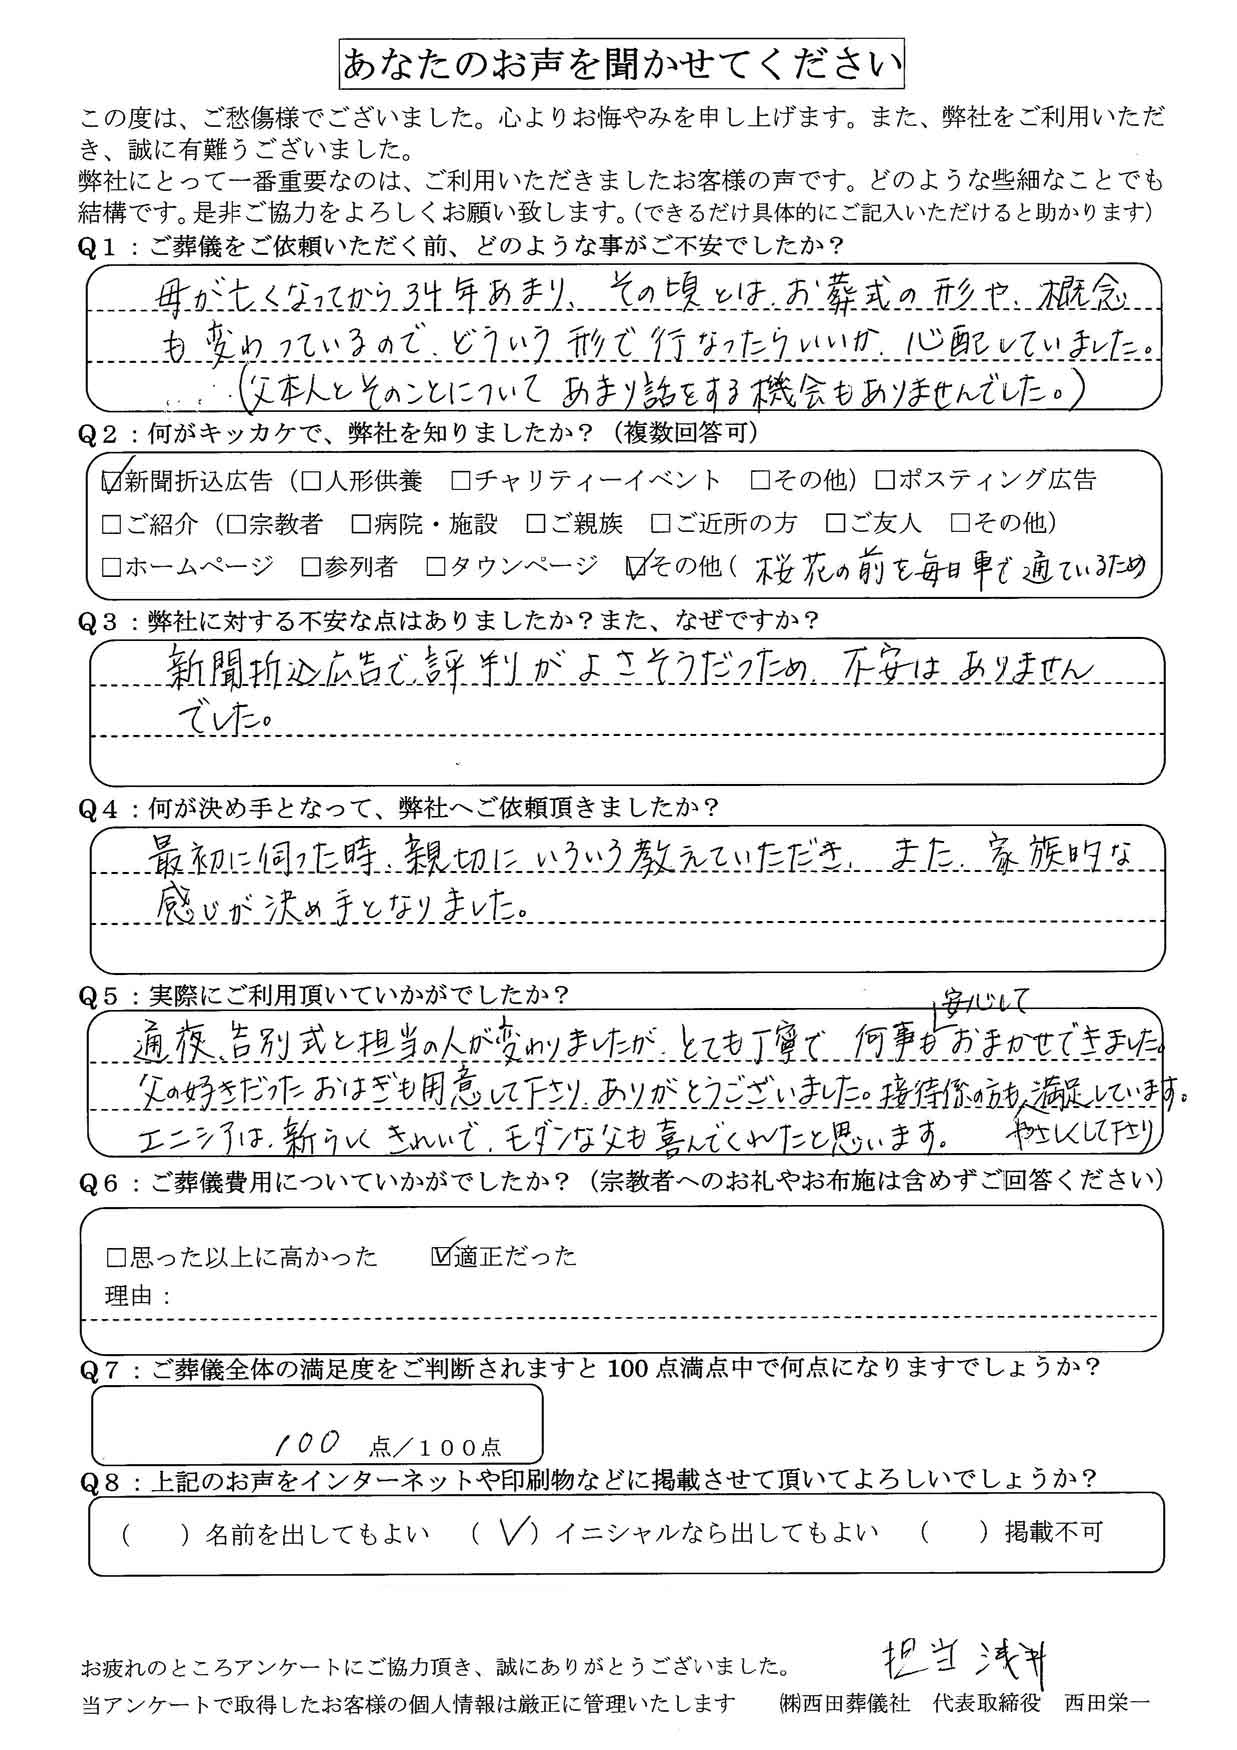 あなたのお声を聞かせてください
この度は、ご愁傷様でございました。心よりお悔やみを申し上げます。また、弊社をご利用いただ
き、誠に有難うございました。
弊社にとって一番重要なのは、ご利用いただきましたお客様の声です。どのような些細なことでも
結構です。是非ご協力をよろしくお願い致します。（できるだけ具体的にご記入いただけると助かります）
Q1：ご葬儀をご依頼いただく前、どのような事がご不安でしたか？
母が亡くなってから34年あまり、その頃とは、お葬式の形や、概念
も変わっているので、どういう形で行なったらいいか、心配していました。
（父本人とそのことについてあまり話をする機会もありませんでした。）
Q2：何がキッカケで、弊社を知りましたか？（複数回答可）
☑新聞折込広告（□人形供養　□チャリティーイベント　□その他）□ポスティング広告
□ご紹介（□宗教者　□病院・施設　□ご親族　□ご近所の方　□ご友人　□その他）
□ホームページ　□参列者　□タウンページ　☑その他（桜花の前を毎日車で通ているため
Q3：弊社に対する不安な点はありましたか？また、なぜですか？
新聞折込広告で、評判がよさそうだっため、不安はありません
でした。
Q4：何が決め手となって、弊社へご依頼頂きましたか？
最初に伺った時、親切にいろいろ教えていただき、また、家族的な
感じが決め手となりました。
Q5：実際にご利用頂いていかがでしたか？
安心して
通夜、告別式と担当の人が変わりましたが、とても丁寧で 何事もおまかせできました。
父の好きだったおはぎも用意して下さり、ありがとうございました。接待係の方も、満足しています。
エニシアは、新らしくきれいで、モダンな父も喜んでくれたと思います。 やさしくして下さり
Q6：ご葬儀費用についていかがでしたか？（宗教者へのお礼やお布施は含めずご回答ください）
□思った以上に高かった　☑適正だった
理由：
Q7：ご葬儀全体の満足度をご判断されますと100点満点中で何点になりますでしょうか？
100 点／１００点
Q8：上記のお声をインターネットや印刷物などに掲載させて頂いてよろしいでしょうか？
（　）名前を出してもよい　（✓）イニシャルなら出してもよい　（　）掲載不可
担当 浅井
お疲れのところアンケートにご協力頂き、誠にありがとうございました。
当アンケートで取得したお客様の個人情報は厳正に管理いたします　㈱西田葬儀社　代表取締役　西田栄一